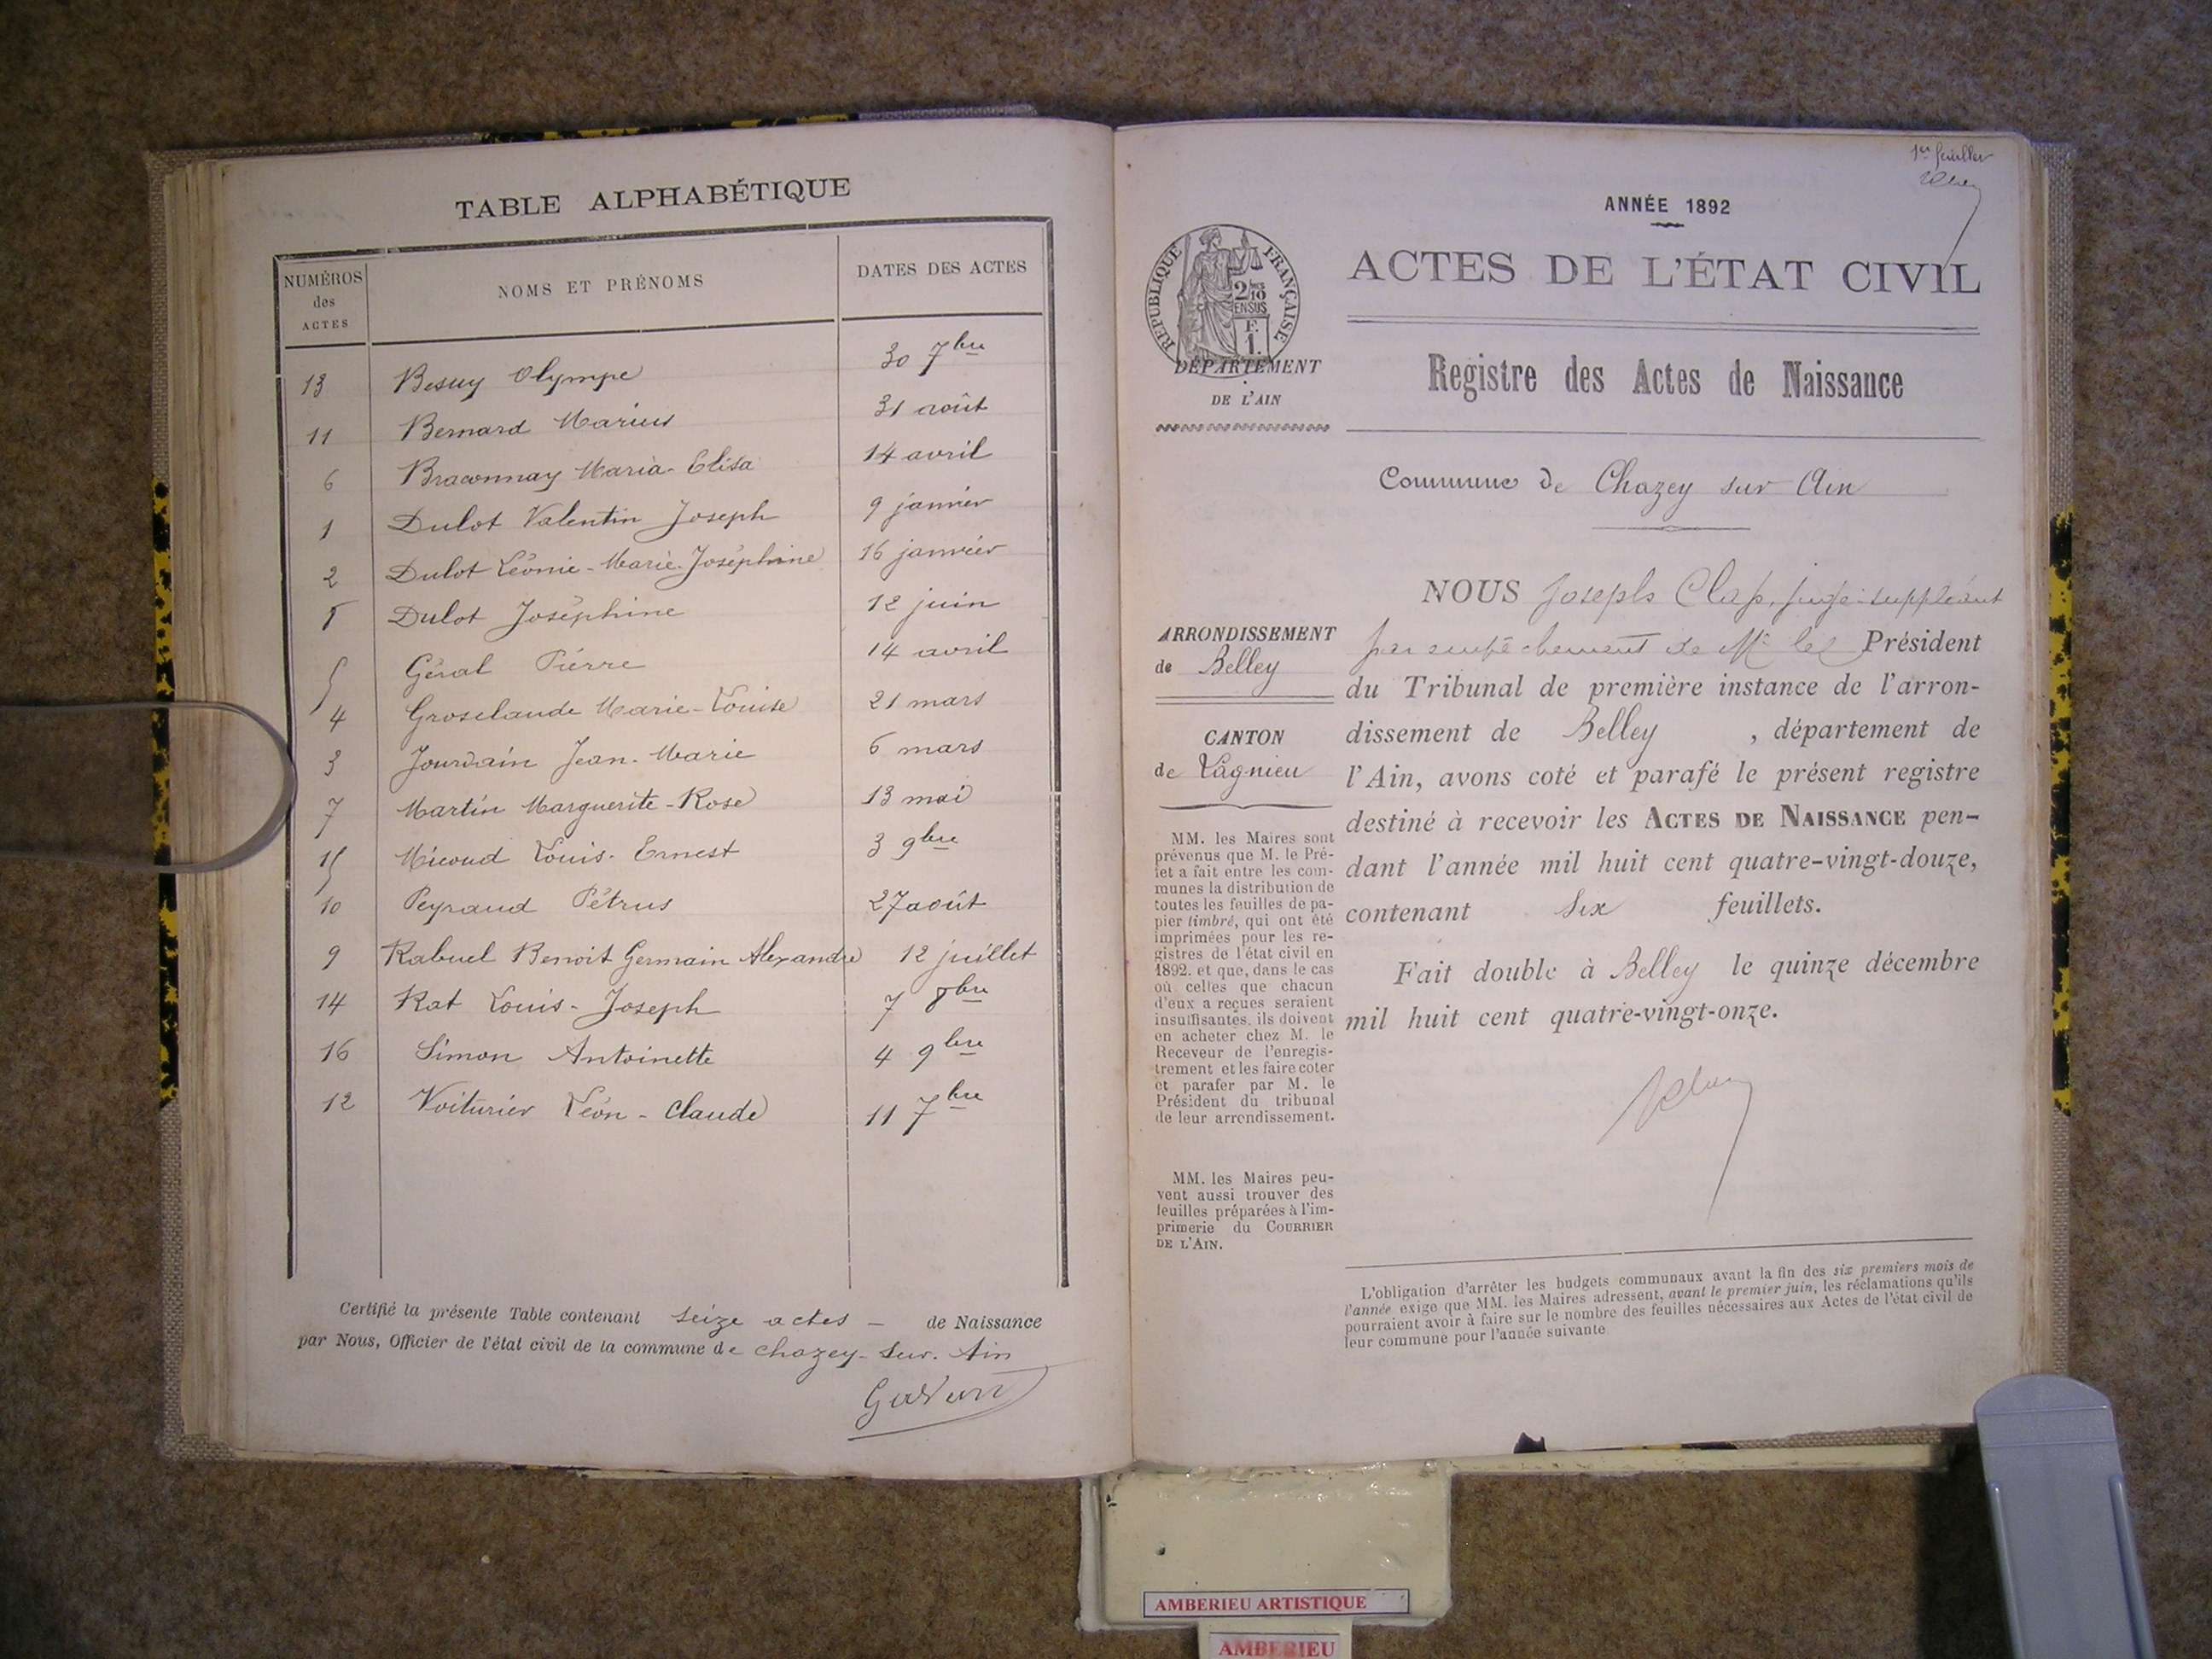 TABLE ALPHABÉTIQUE
NUMÉROS des ACTES
NOMS ET PRÉNOMS
DATES DES ACTES
13 Besuy Olympe 30 7bre
11 Bernard Marius 31 août
6 Braconnay Maria-Elisa 14 avril
1 Dulot Valentin Joseph 9 janvier
2 Dulot Léonie-Marie-Joséphine 16 janvier
Dulot Joséphine 12 juin
5 Géral Pierre 14 avril
4 Groselaude Marie-Louise 21 mars
3 Jourdain Jean-Marie 6 mars
7 Martin Marguerite-Rose 13 mai
15 Micoud Louis-Ernest 3 9bre
10 Peyraud Pétrus 27 août
9 Rabuel Benoit Germain Alexandre 12 juillet
14 Rat Louis-Joseph 7 8bre
16 Simon Antoinette 4 9bre
12 Voiturier Léon-Claude 11 7bre
Certifié la présente Table contenant seize actes — de Naissance
par Nous, Officier de l'état civil de la commune de Chazey-sur-Ain
1er feuillet
ANNÉE 1892
RÉPUBLIQUE FRANÇAISE
2/10
EN SUS
F.
1.
ACTES DE L'ÉTAT CIVIL
DÉPARTEMENT
DE L'AIN
Registre des Actes de Naissance
Commune de Chazey sur Ain
ARRONDISSEMENT
de Belley
CANTON
de Lagnieu
MM. les Maires sont
prévenus que M. le Pré-
fet a fait entre les com-
munes la distribution de
toutes les feuilles de pa-
pier timbré, qui ont été
imprimées pour les re-
gistres de l'état civil en
1892. et que, dans le cas
où celles que chacun
d'eux a reçues seraient
insuffisantes, ils doivent
en acheter chez M. le
Receveur de l'enregis-
trement et les faire coter
et parafer par M. le
Président du tribunal
de leur arrondissement.
MM. les Maires peu-
vent aussi trouver des
feuilles préparées à l'im-
primerie du COURRIER
DE L'AIN.
NOUS Joseph Clap, juge suppléant
par empêchement de Mr le Président
du Tribunal de première instance de l'arron-
dissement de Belley , département de
l'Ain, avons coté et parafé le présent registre
destiné à recevoir les ACTES DE NAISSANCE pen-
dant l'année mil huit cent quatre-vingt-douze,
contenant Six feuillets.
Fait double à Belley le quinze décembre
mil huit cent quatre-vingt-onze.
L'obligation d'arrêter les budgets communaux avant la fin des six premiers mois de
l'année exige que MM. les Maires adressent, avant le premier juin, les réclamations qu'ils
pourraient avoir à faire sur le nombre des feuilles nécessaires aux Actes de l'état civil de
leur commune pour l'année suivante
AMBERIEU ARTISTIQUE
AMBERIEU